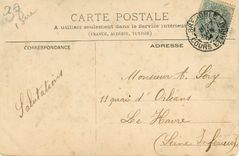 35
CARTE POSTALE
A utiliser seulement dans le Service intérieur
(FRANCE, ALGÉRIE, TUNISIE)
CORRESPONDANCE
ADRESSE
Salutations
Monsieur A.
11 quai d'Orléans
Le Havre
(Seine Inférieure)